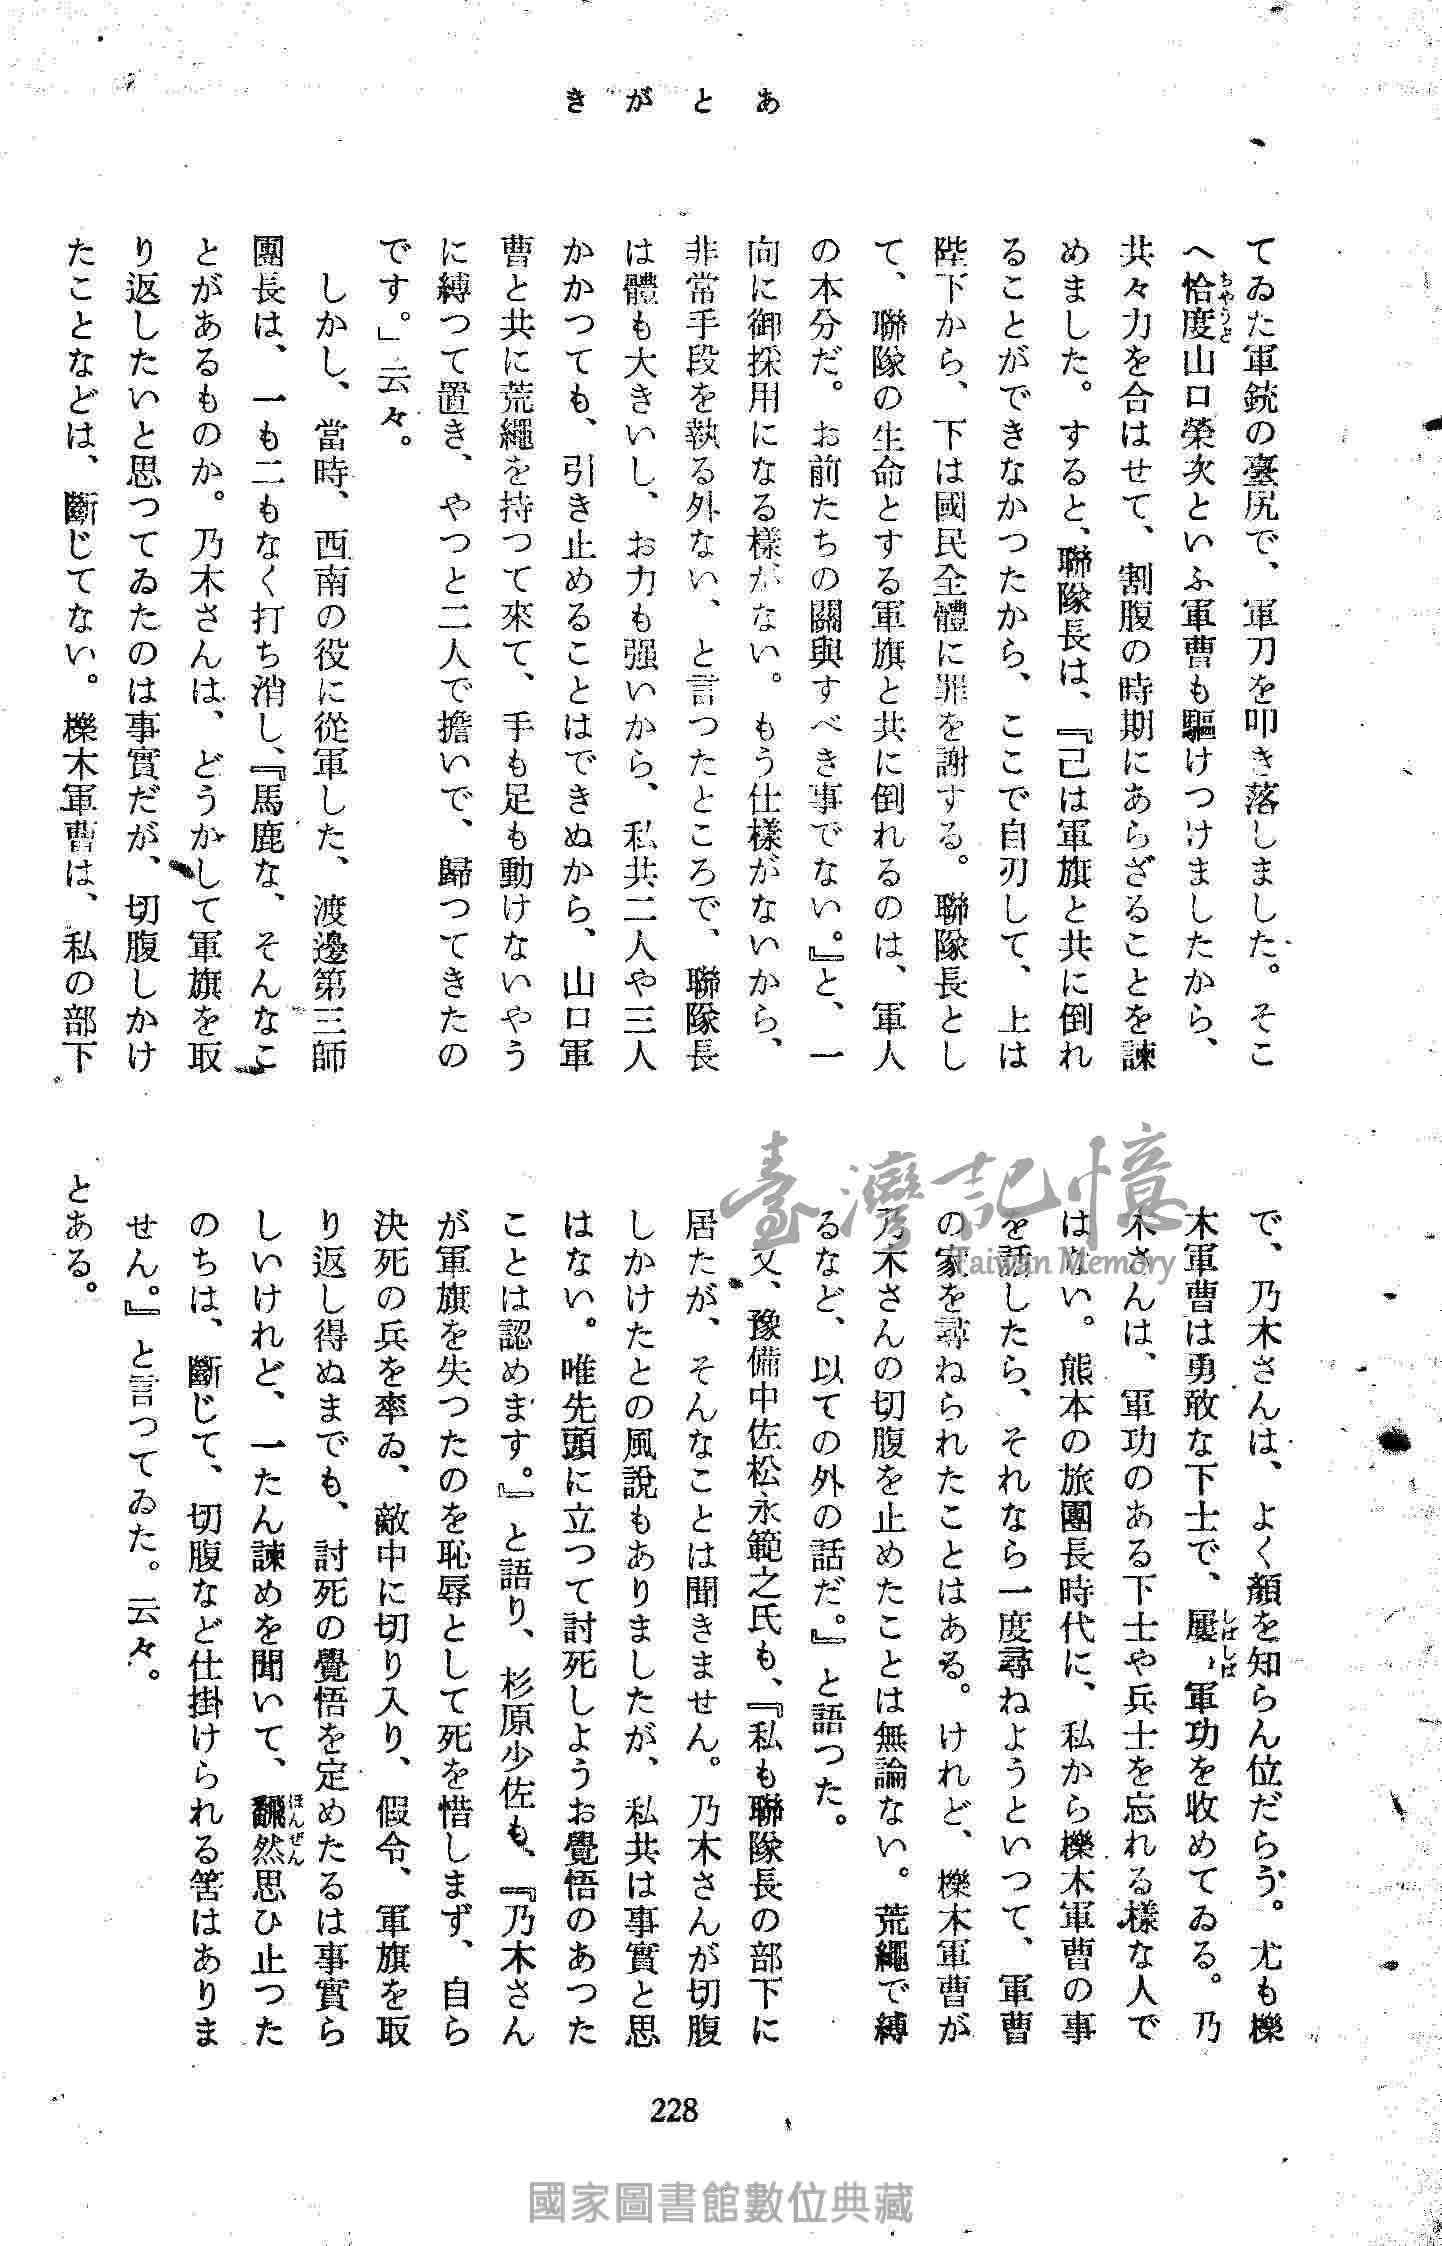 あとがき
てゐた軍銃の臺尻で、軍刀を叩き落しました。そこ
へ恰度山口榮次といふ軍曹も驅けつけましたから、
ちやうど
共々力を合はせて、割腹の時期にあらざることを諫
めました。すると、聯隊長は、『己は軍旗と共に倒れ
ることができなかつたから、ここで自刃して、上は
陛下から、下は國民全體に罪を謝する。聯隊長とし
て、聯隊の生命とする軍旗と共に倒れるのは、軍人
の本分だ。お前たちの關與すべき事でない。』と、一
向に御採用になる樣がない。もう仕樣がないから、
非常手段を執る外ない、と言つたところで、聯隊長
は體も大きいし、お力も强いから、私共二人や三人
かかつても、引き止めることはできぬから、山口軍
曹と共に荒繩を持つて來て、手も足も動けないやう
に縛つて置き、やつと二人で擔いで、歸つてきたの
です。」云々。
しかし、當時、西南の役に從軍した、渡邊第三師
團長は、一も二もなく打ち消し、『馬鹿な、そんなこ
とがあるものか。乃木さんは、どうかして軍旗を取
り返したいと思つてゐたのは事實だが、切腹しかけ
たことなどは、斷じてない。櫟木軍曹は、私の部下
で、乃木さんは、よく顏を知らん位だらう。尤も櫟
木軍曹は勇敢な下士で、屢〻軍功を收めてゐる。乃
しばしば
木さんは、軍功のある下士や兵士を忘れる樣な人で
はない。熊本の旅團長時代に、私から櫟木軍曹の事
を話したら、それなら一度尋ねようといつて、軍曹
の家を尋ねられたことはある。けれど、櫟木軍曹が
乃木さんの切腹を止めたことは無論ない。荒繩で縛
るなど、以ての外の話だ。』と語つた。
又、豫備中佐松永範之氏も、『私も聯隊長の部下に
居たが、そんなことは聞きません。乃木さんが切腹
しかけたとの風說もありましたが、私共は事實と思
はない。唯先頭に立つて討死しようお覺悟のあつた
ことは認めます。』と語り、杉原少佐も、『乃木さん
が軍旗を失つたのを恥辱として死を惜しまず、自ら
決死の兵を率ゐ、敵中に切り入り、假令、軍旗を取
り返し得ぬまでも、討死の覺悟を定めたるは事實ら
しいけれど、一たん諫めを聞いて、飜然思ひ止つた
ほんぜん
のちは、斷じて、切腹など仕掛けられる筈はありま
せん。』と言つてゐた。云々。
とある。
228
臺灣記憶
Taiwan Memory
國家圖書館數位典藏